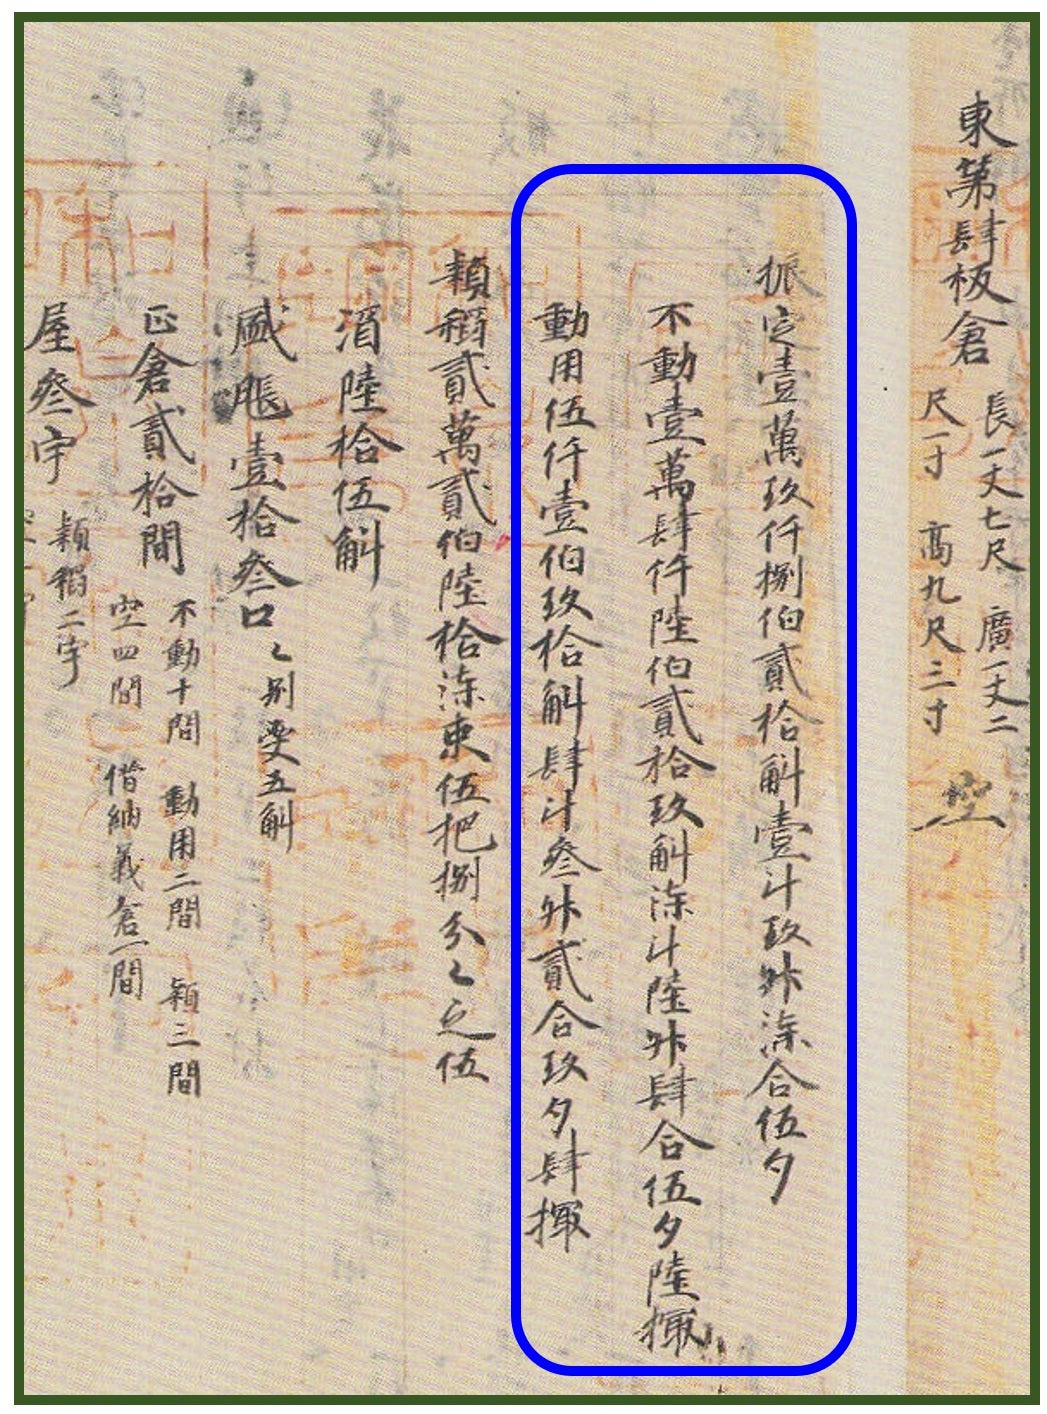 東第肆板倉
長一丈七尺 廣一丈二
尺一寸 高九尺三寸
空
振定壹萬玖仟捌伯貳拾斛壹斗玖升漆合伍夕
不動壹萬肆仟陸伯貳拾玖斛漆斗陸升肆合伍夕陸撮
動用伍仟壹伯玖拾斛肆斗叁升貳合玖夕肆撮
穎稻貳萬貳伯陸拾漆束伍把捌分
陸拾伍斛
壹拾叁口
五斛
正倉貳拾間
不動十間 動用二間 穎三間
空四間 借納義倉一間
屋叁宇
穎稻二宇